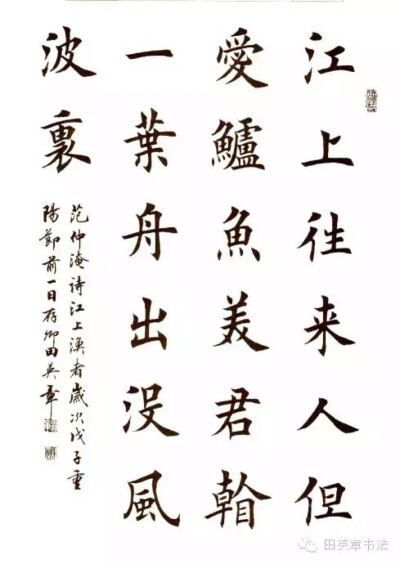 江上往来人但
愛鱸魚美君看
一葉舟出没風
波裏
范仲淹詩江上漁者歲次戊子重
陽節前一日存卿田英章
田英章书法